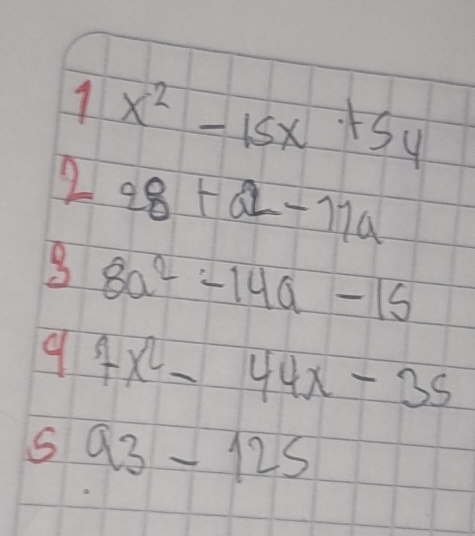 1 x² - 15x + 54
2 28 + a2 - 11a
3 8a² - 14a - 15
4 7x² - 44x - 35
5 a3 - 125